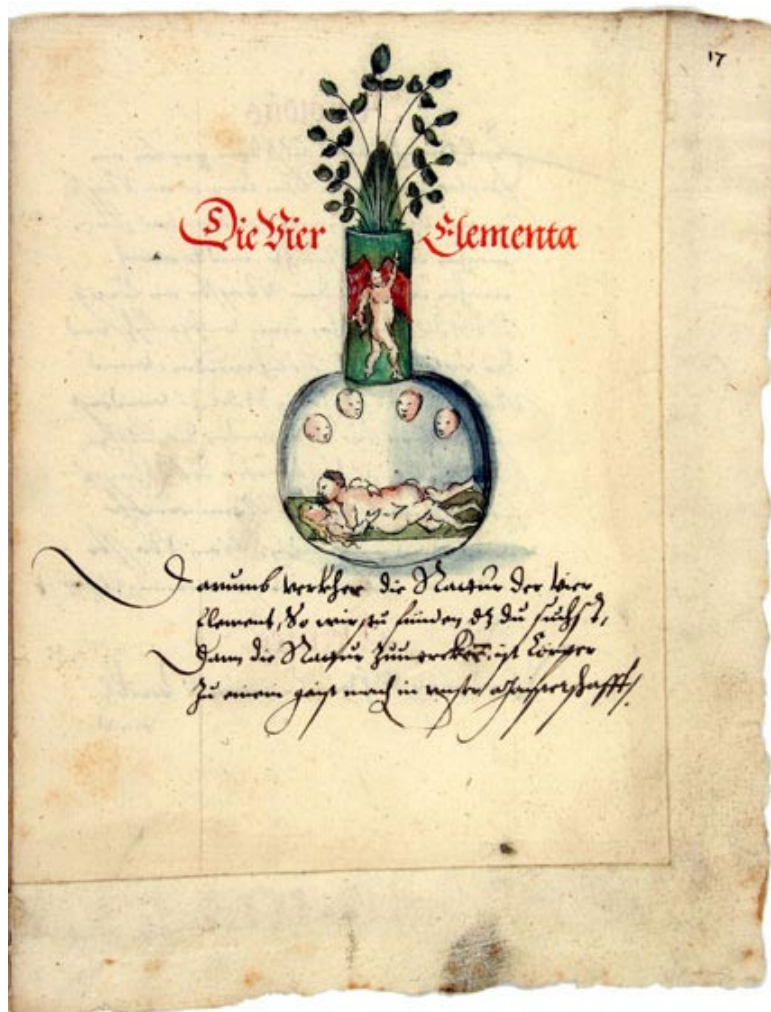 17
Die Vier Elementa
Darumb verkher die Nattur der vier
Element, So wirstu finden dz du suchst,
Dann die Nattur zuuerkern ist Körper
Zu einem geist mach in vnser Maisterschafft.